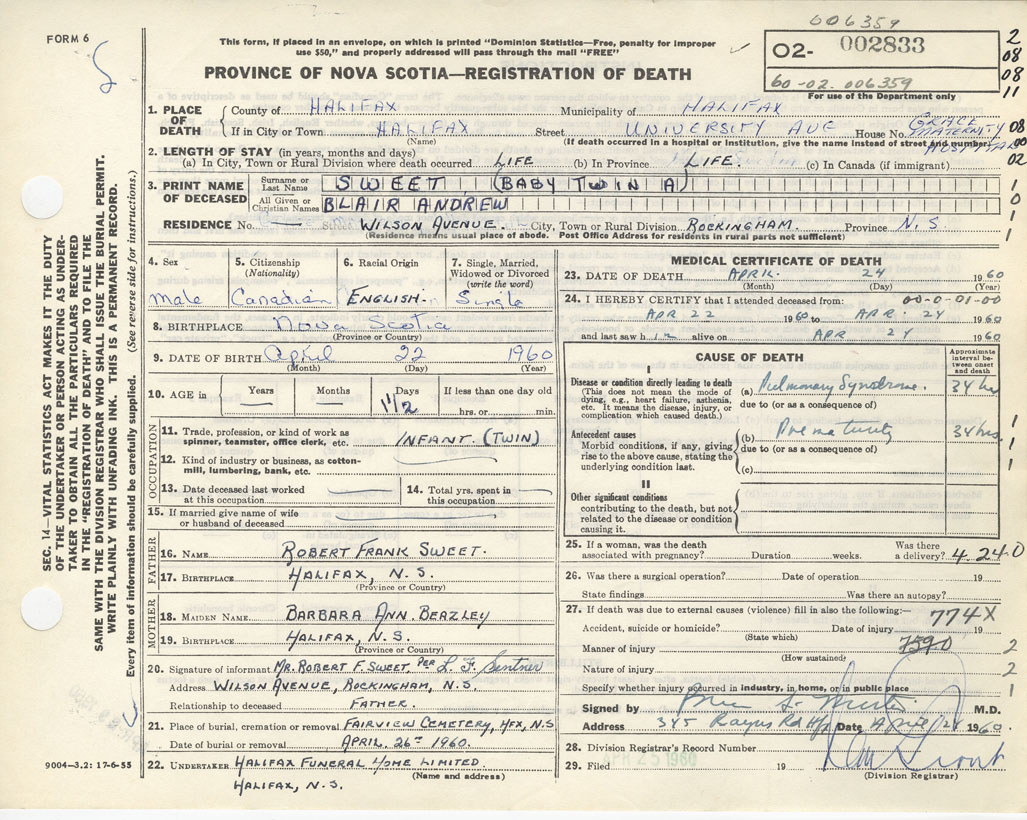 FORM 6
006359
This form, if placed in an envelope, on which is printed "Dominion Statistics—Free, penalty for improper
use $50," and properly addressed will pass through the mail "FREE"
PROVINCE OF NOVA SCOTIA—REGISTRATION OF DEATH
02- 002833
60-02. 006359
For use of the Department only
2
08
08
11
1. PLACE OF DEATH
County of HALIFAX Municipality of HALIFAX
If in City or Town HALIFAX Street UNIVERSITY AVE House No. GRACE MATERNITY HOSPITAL
(Name) (If death occurred in a hospital or institution, give the name instead of street and number)
08
00
02
2. LENGTH OF STAY (in years, months and days)
(a) In City, Town or Rural Division where death occurred LIFE (b) In Province LIFE. (c) In Canada (if immigrant)
3. PRINT NAME OF DECEASED
Surname or Last Name SWEET (BABY TWIN A)
All Given or Christian Names BLAIR ANDREW
1
0
1
RESIDENCE No. — St. WILSON AVENUE. City, Town or Rural Division ROCKINGHAM. Province N.S
(Residence means usual place of abode. Post Office Address for residents in rural parts not sufficient)
4. Sex
male
5. Citizenship (Nationality)
Canadian
6. Racial Origin
ENGLISH.
7. Single, Married, Widowed or Divorced (write the word)
Single
8. BIRTHPLACE Nova Scotia
(Province or Country)
9. DATE OF BIRTH April 22 1960
(Month) (Day) (Year)
10. AGE in Years — Months — Days 1 1/2 If less than one day old
hrs. or min.
OCCUPATION
11. Trade, profession, or kind of work as
spinner, teamster, office clerk, etc. INFANT. (TWIN)
12. Kind of industry or business, as cotton-
mill, lumbering, bank, etc.
13. Date deceased last worked
at this occupation
14. Total yrs. spent in
this occupation
15. If married give name of wife
or husband of deceased
FATHER
16. NAME ROBERT FRANK SWEET.
17. BIRTHPLACE HALIFAX, N.S.
(Province or Country)
MOTHER
18. MAIDEN NAME BARBARA ANN. BEAZLEY
19. BIRTHPLACE HALIFAX, N.S.
(Province or Country)
20. Signature of informant MR. ROBERT F. SWEET PER L. F.
Address WILSON AVENUE, ROCKINGHAM, N.S.
Relationship to deceased FATHER.
21. Place of burial, cremation or removal FAIRVIEW CEMETERY, HFX, N.S
Date of burial or removal APRIL. 26TH 1960.
22. UNDERTAKER HALIFAX FUNERAL HOME LIMITED
(Name and address)
HALIFAX, N.S.
9004—3.2: 17-6-55
MEDICAL CERTIFICATE OF DEATH
23. DATE OF DEATH APRIL. 24 1960
(Month) (Day) (Year)
24. I HEREBY CERTIFY that I attended deceased from: 00-0-01-00
APR 22 1960 to APR. 24 1960
and last saw h im alive on APR 24 1960
CAUSE OF DEATH
Approximate interval between onset and death
I
Disease or condition directly leading to death
(This does not mean the mode of dying, e.g., heart failure, asthenia, etc. It means the disease, injury, or complication which caused death.)
(a) Pulmonary Syndrome. 34 hrs
due to (or as a consequence of)
Antecedent causes
Morbid conditions, if any, giving rise to the above cause, stating the underlying condition last.
(b) Prematurity 34 hrs.
due to (or as a consequence of)
(c)
1
1
1
II
Other significant conditions
contributing to the death, but not related to the disease or condition causing it.
25. If a woman, was the death
associated with pregnancy? Duration weeks. Was there a delivery? 4.24.0
26. Was there a surgical operation? Date of operation 19
State findings Was there an autopsy?
27. If death was due to external causes (violence) fill in also the following:—
774X
Accident, suicide or homicide? Date of injury 19
(State which)
Manner of injury 7590 2
(How sustained)
Nature of injury 2
Specify whether injury occurred in industry, in home, or in public place 1
Signed by M.D.
Address 345 Rd Hfx Date April 24 1960
28. Division Registrar's Record Number
29. Filed APR 25 1960 19
(Division Registrar)
SEC. 14—VITAL STATISTICS ACT MAKES IT THE DUTY
OF THE UNDERTAKER OR PERSON ACTING AS UNDER-
TAKER TO OBTAIN ALL THE PARTICULARS REQUIRED
IN THE "REGISTRATION OF DEATH" AND TO FILE THE
SAME WITH THE DIVISION REGISTRAR WHO SHALL ISSUE THE BURIAL PERMIT.
WRITE PLAINLY WITH UNFADING INK. THIS IS A PERMANENT RECORD.
Every item of information should be carefully supplied. (See reverse side for instructions.)